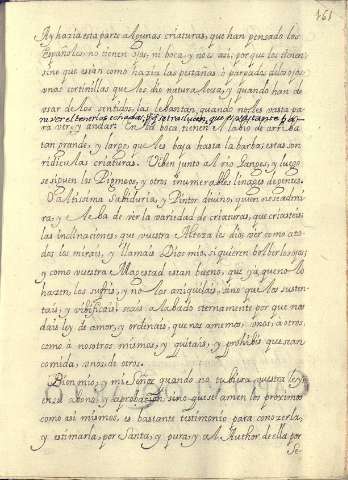 161
Ay hazia esta parte algunas criaturas, que han pensado los
Españoles no tienen ojos, ni boca, y no es asi, porque los tienen
sino que estan como hazia las pestañas o parpados de los ojos
unas cortinillas que les dio naturaleza, y quando han de
usar de los sentidos, las lebantan, quando no, les basta pa
ra no ver el tenerlas echadas, y se trasluçen, que es bastante pa
ra ver, y andar. En la boca tienen el labio de arriba
tan grande, y largo, que les baja hasta la barba; estas son
ridiculas criaturas. Viben junto al rio Ganges, y luego
se siguen los Pigmeos, y otros inumerables linages de gentes.
Saltissima Sabiduria, y Pintor divino, quien no se admi
ra, y Alaba de ver la variedad de criaturas, que criasteis
las inclinaciones, que vuestra Alteza les dio, ver como a to
dos los mirais, y llamais Dios mio, si quieren bolberlos ojos,
y como vuestra Magestad es tan bueno, que ya que no lo
hazen, los sufris, y no los aniquilais, sino que los susten
tais, y vibificais; seais alabado eternamente porque nos
dais ley de amor, y ordenais, que nos amemos unos, a otros,
como a nosotros mismos, y quitais, y prohibis que sean
comida, unos, de otros.
Bien mio, y mi Señor quando no tubiera vuestra ley
en su abono, y aprobacion, sino que se amen los proximos
como asi mismos, es bastante testimonio para conozerla,
y estimarla, por Santa, y pura, y al Author de ella por
Se-